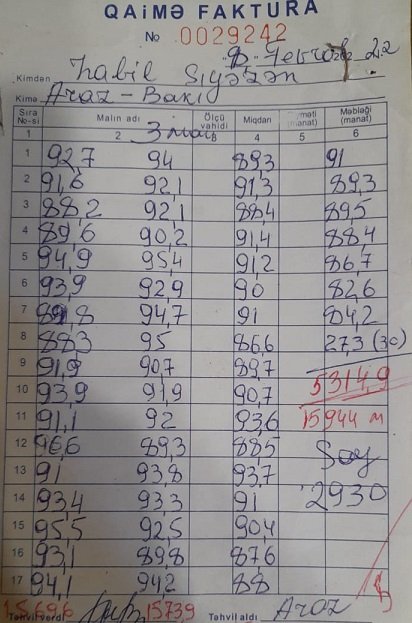 QAİMƏ FAKTURA
№ 0029242
22
Kimdən Habil Sıyəzən
Kimə Araz - Bakı
Sıra №-si Malın adı Ölçü vahidi Miqdarı Qiyməti (manat) Məbləği (manat)
1 2 3 mal 3 4 5 6
1 92,7 94 89,3 91
2 91,6 92,1 91,3 89,3
3 88,2 92,1 88,4 89,5
4 89,6 90,2 91,4 88,4
5 94,9 95,4 91,2 86,7
6 93,9 92,9 90 82,6
7 89,8 94,7 91 84,2
8 88,3 95 86,6 27,3 (30)
9 91,9 90,7 89,7
5314,9
10 93,9 91,9 90,7
11 91,1 92 93,6 15944 m
12 96,6 89,3 88,5 Say
13 91 93,8 93,7
14 93,4 93,3 91 2930
15 95,5 92,5 90,4
16 93,1 89,8 87,6
17 94,1 94,2 88
1569,6 1573,9
Təhvil verdi Təhvil aldı Araz